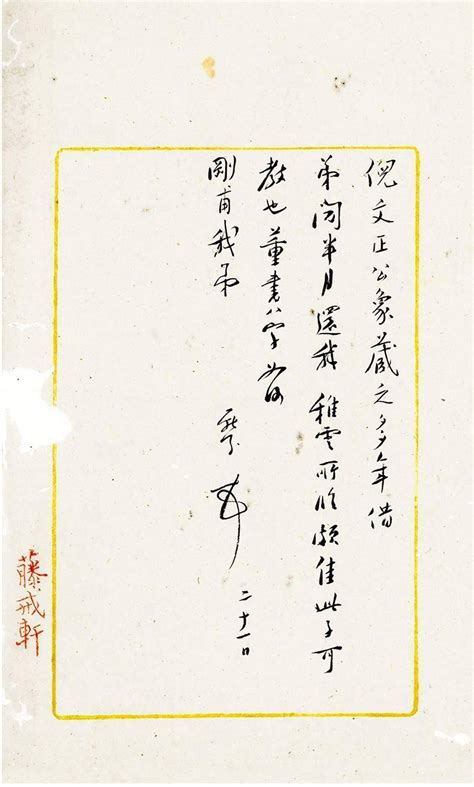 倪文正公象藏之多年借
弟閱半月還我稚雲所臨頗佳此子可
教也董書八字
剛甫我弟
二十一日
藤戒軒